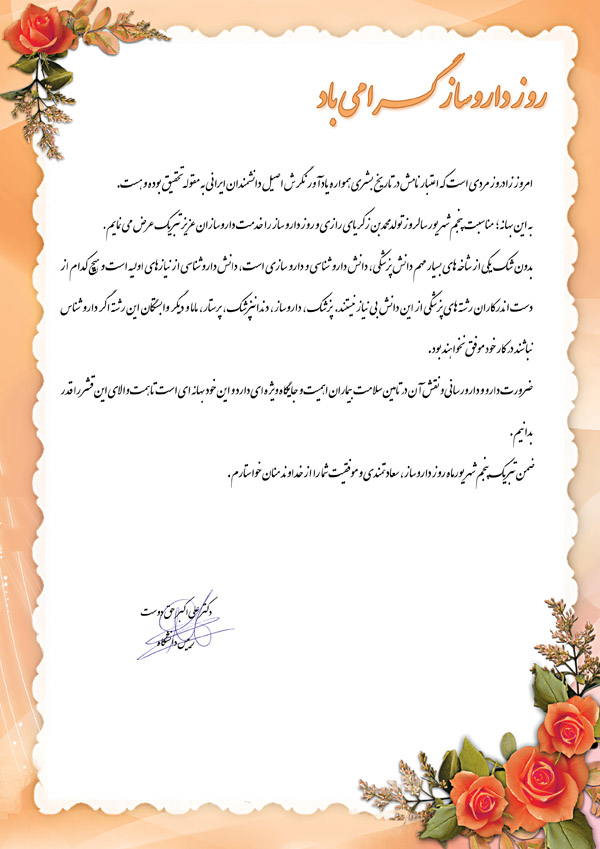 روز داروساز گرامی باد
امروز زادروز مردی است که اعتبار نامش در تاریخ بشری همواره یادآور نگرش اصیل دانشمندان ایرانی به مقوله تحقیق بوده و هست.
به این بهانه؛ مناسبت پنجم شهریور سالروز تولد محمد بن زکریای رازی و روز داروساز را خدمت داروسازان عزیز تبریک عرض می نمایم.
بدون شک یکی از شاخه های بسیار مهم دانش پزشکی، دانش داروشناسی و داروسازی است، دانش داروشناسی از نیازهای اولیه است و هیچ کدام از
دست اندرکاران رشته های پزشکی از این دانش بی نیاز نیستند. پزشک، داروساز، دندانپزشک، پرستار، ماما و دیگر وابستگان این رشته اگر داروشناس
نباشند در کار خود موفق نخواهند بود.
ضرورت دارو و دارورسانی و نقش آن در تامین سلامت بیماران اهمیت و جایگاه ویژه ای دارد و این خود بهانه ای است تا همت والای این قشر را قدر
بدانیم.
ضمن تبریک پنجم شهریور ماه روز داروساز، سعادتمندی و موفقیت شما را از خداوند منان خواستارم.
دکتر علی اکبر حق دوست
رییس دانشگاه